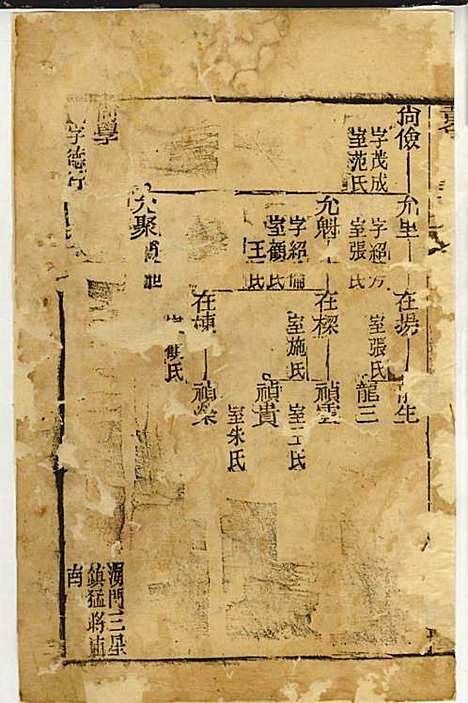 尙儉
字茂成
室范氏
允里
字紹方
室張氏
在揚
室張氏
生
龍三
允魁
字紹倫
室顧氏
王氏
在樑
室施氏
禎雲
室王氏
禎貴
室朱氏
尙學
字德行
允聚
在棟
氏
禎榮
三星
鎮猛將
南